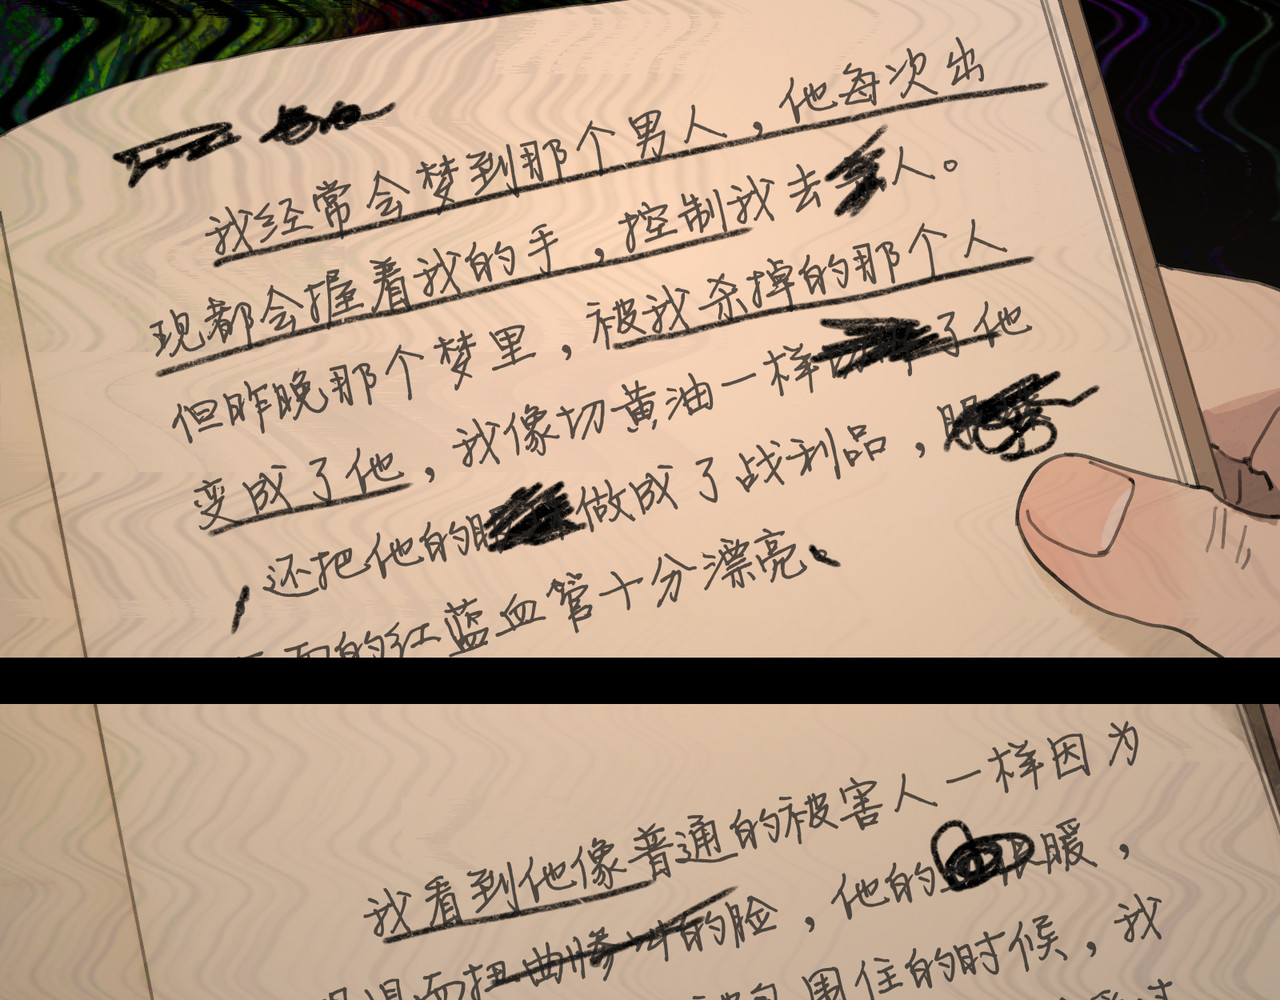 我经常会梦到那个男人，他每次出
现都会握着我的手，控制我去人。
但昨晚那个梦里，被我杀掉的那个人
变成了他，我像切黄油一样了他
还把他的做成了战利品，
面的红蓝血管十分漂亮
我看到他像普通的被害人一样因为
而扭曲惨的脸，他的暖，
围住的时候，我